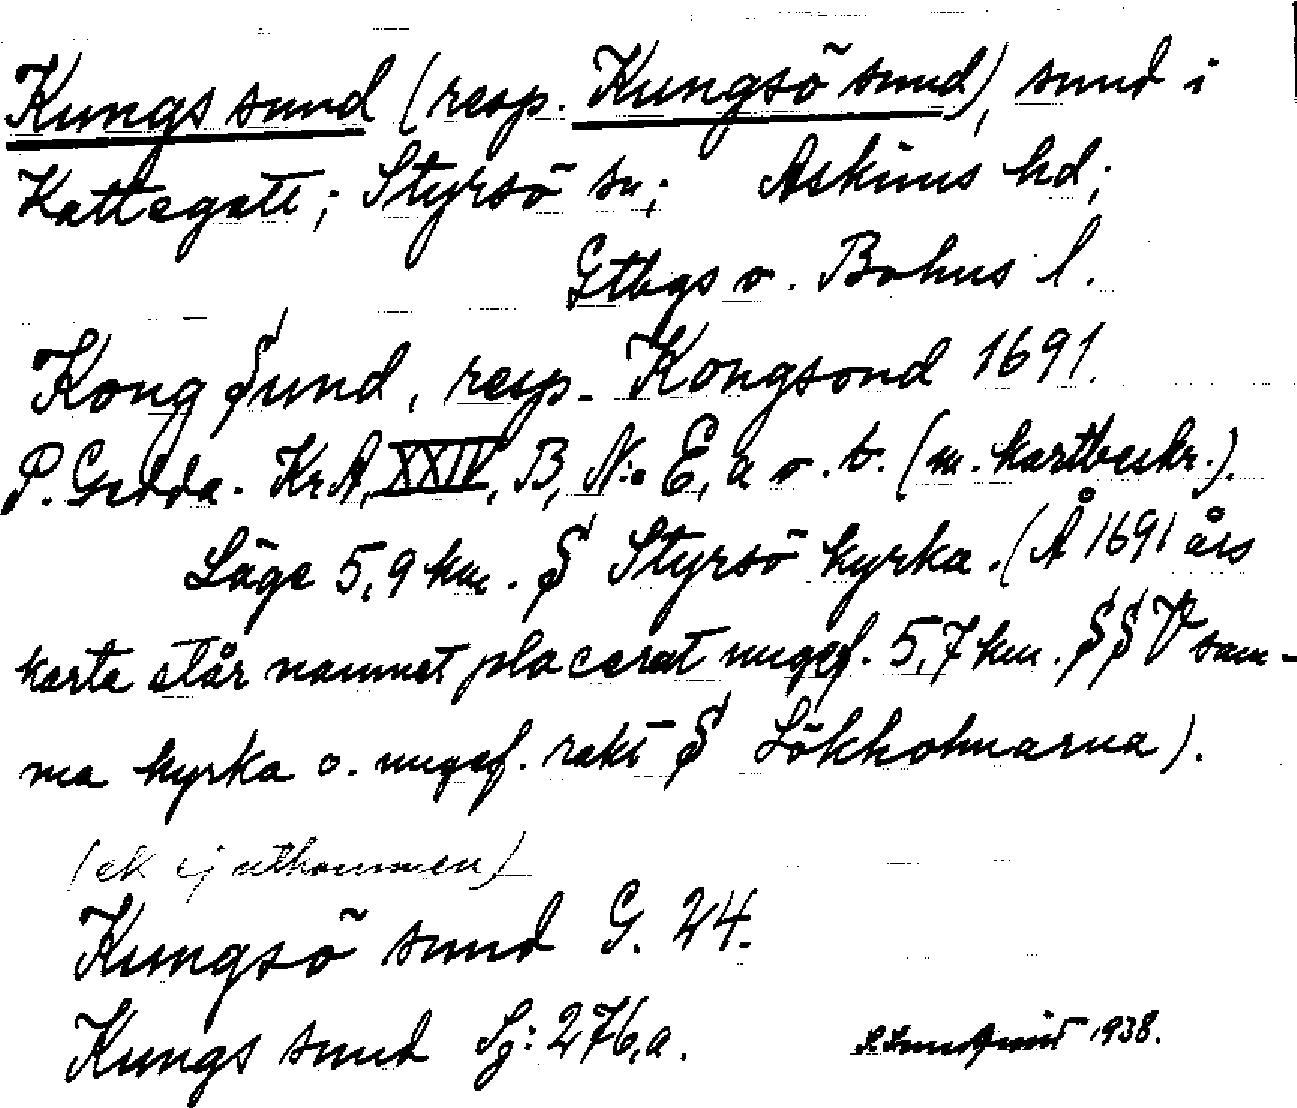 Kungs sund (resp. Kungsö sund), sund i
Kattegatt; Styrsö sn; Askims hd;
Gtbgs o. Bohus l.
Kong Sund, resp. Kongsond 1691.
P. Gedda. KrA, XXIV, B, N:o E, a o. b. (m. kartbeskr.).
Läge 5,9 km. S Styrsö kyrka. (Å 1691 års
karta står namnet placerat ungef. 5,7 km. SSV sam-
ma kyrka o. ungef. rakt S Lökholmarna).
(ek ej utkommen)
Kungsö sund G. 24.
Kungs sund Sj: 276,a.
1938.